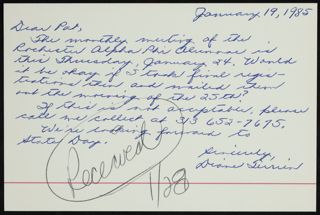 January 19, 1985
Dear Pat,
The monthly meeting of the
Rochester Alpha Phi Alumnae is
this Thursday, January 24. Would
it be okay if I took final regis-
trations then and mailed them
out the morning of the 25th?
If this is not acceptable, please
call me collect at 313 652-7695.
We're looking forward to
State Day.
Sincerely,
Diane
Received
1/28